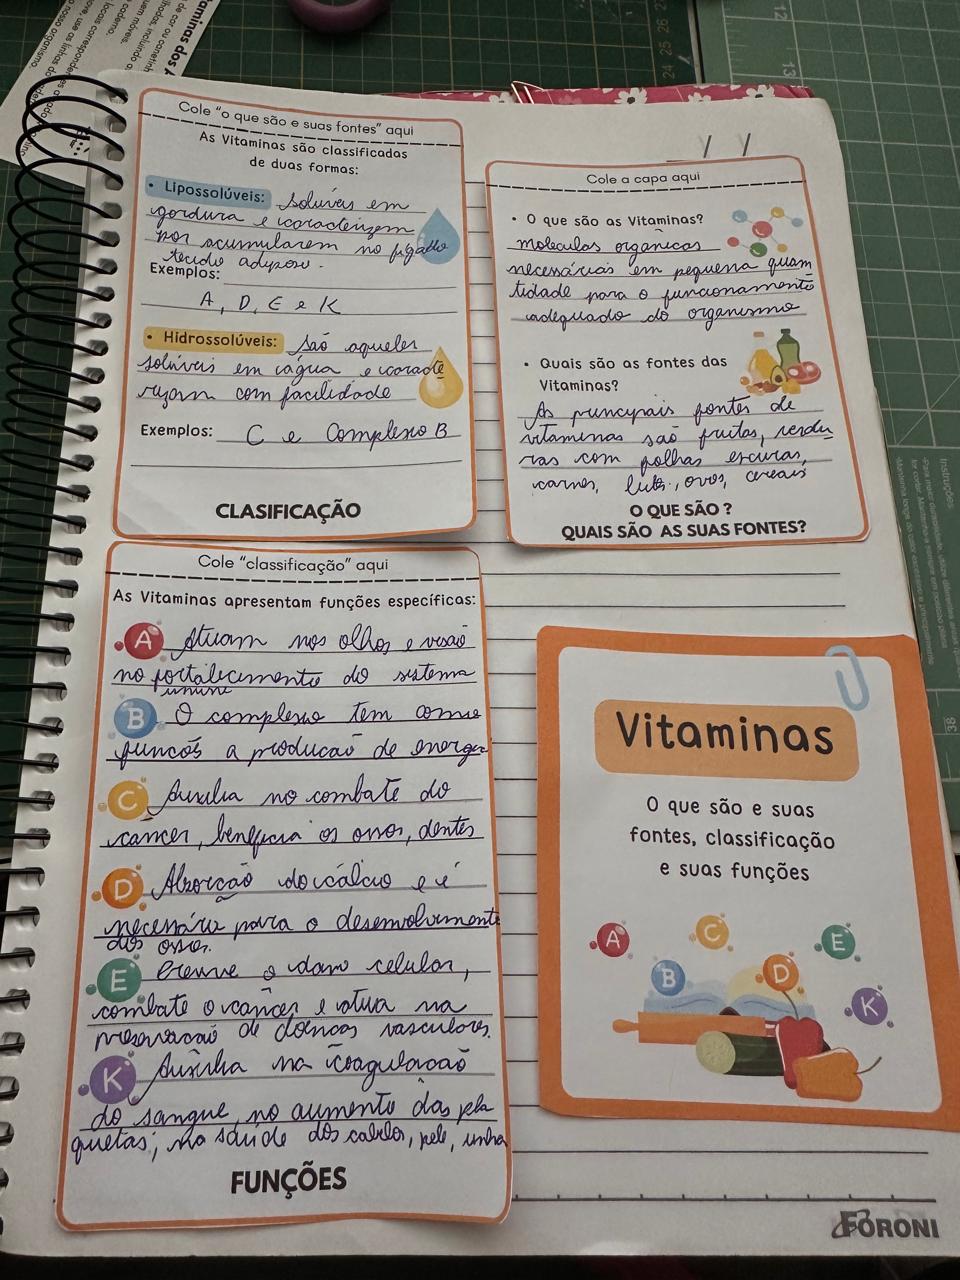 Cole "o que são e suas fontes" aqui
As Vitaminas são classificadas
de duas formas:
• Lipossolúveis: Solúveis em
gordura e caracterizam
por acumularem no fígado
tecido adiposo.
Exemplos:
A, D, E e K
• Hidrossolúveis: São aqueles
solúveis em água e caracte
rizam com facilidade
Exemplos: C e Complexo B
CLASIFICAÇÃO
Cole a capa aqui
• O que são as Vitaminas?
moleculas orgânicas
necessárias em pequena quan
tidade para o funcionamento
adequado do organismo
• Quais são as fontes das
Vitaminas?
As principais fontes de
vitaminas são frutas, verdu
ras com folhas escuras,
carnes, leite, ovos, cereais
O QUE SÃO ?
QUAIS SÃO AS SUAS FONTES?
Cole "classificação" aqui
As Vitaminas apresentam funções específicas:
A Atuam nos olhos e visão
no fortalecimento do sistema
imune
B O complexo tem como
a produção de energia
C Auxilia no combate do
cancer, beneficia os ossos, dentes
D Absorção do cálcio e é
necessário para o desenvolvimento
dos ossos.
E o dano celular,
combate o câncer e atua na
preservação de doenças vasculares.
K Auxilia na coagulação
do sangue, no aumento das pla
quetas, na saúde dos cabelos, pele, unha
FUNÇÕES
Vitaminas
O que são e suas
fontes, classificação
e suas funções
A C E
B D K
FORONI